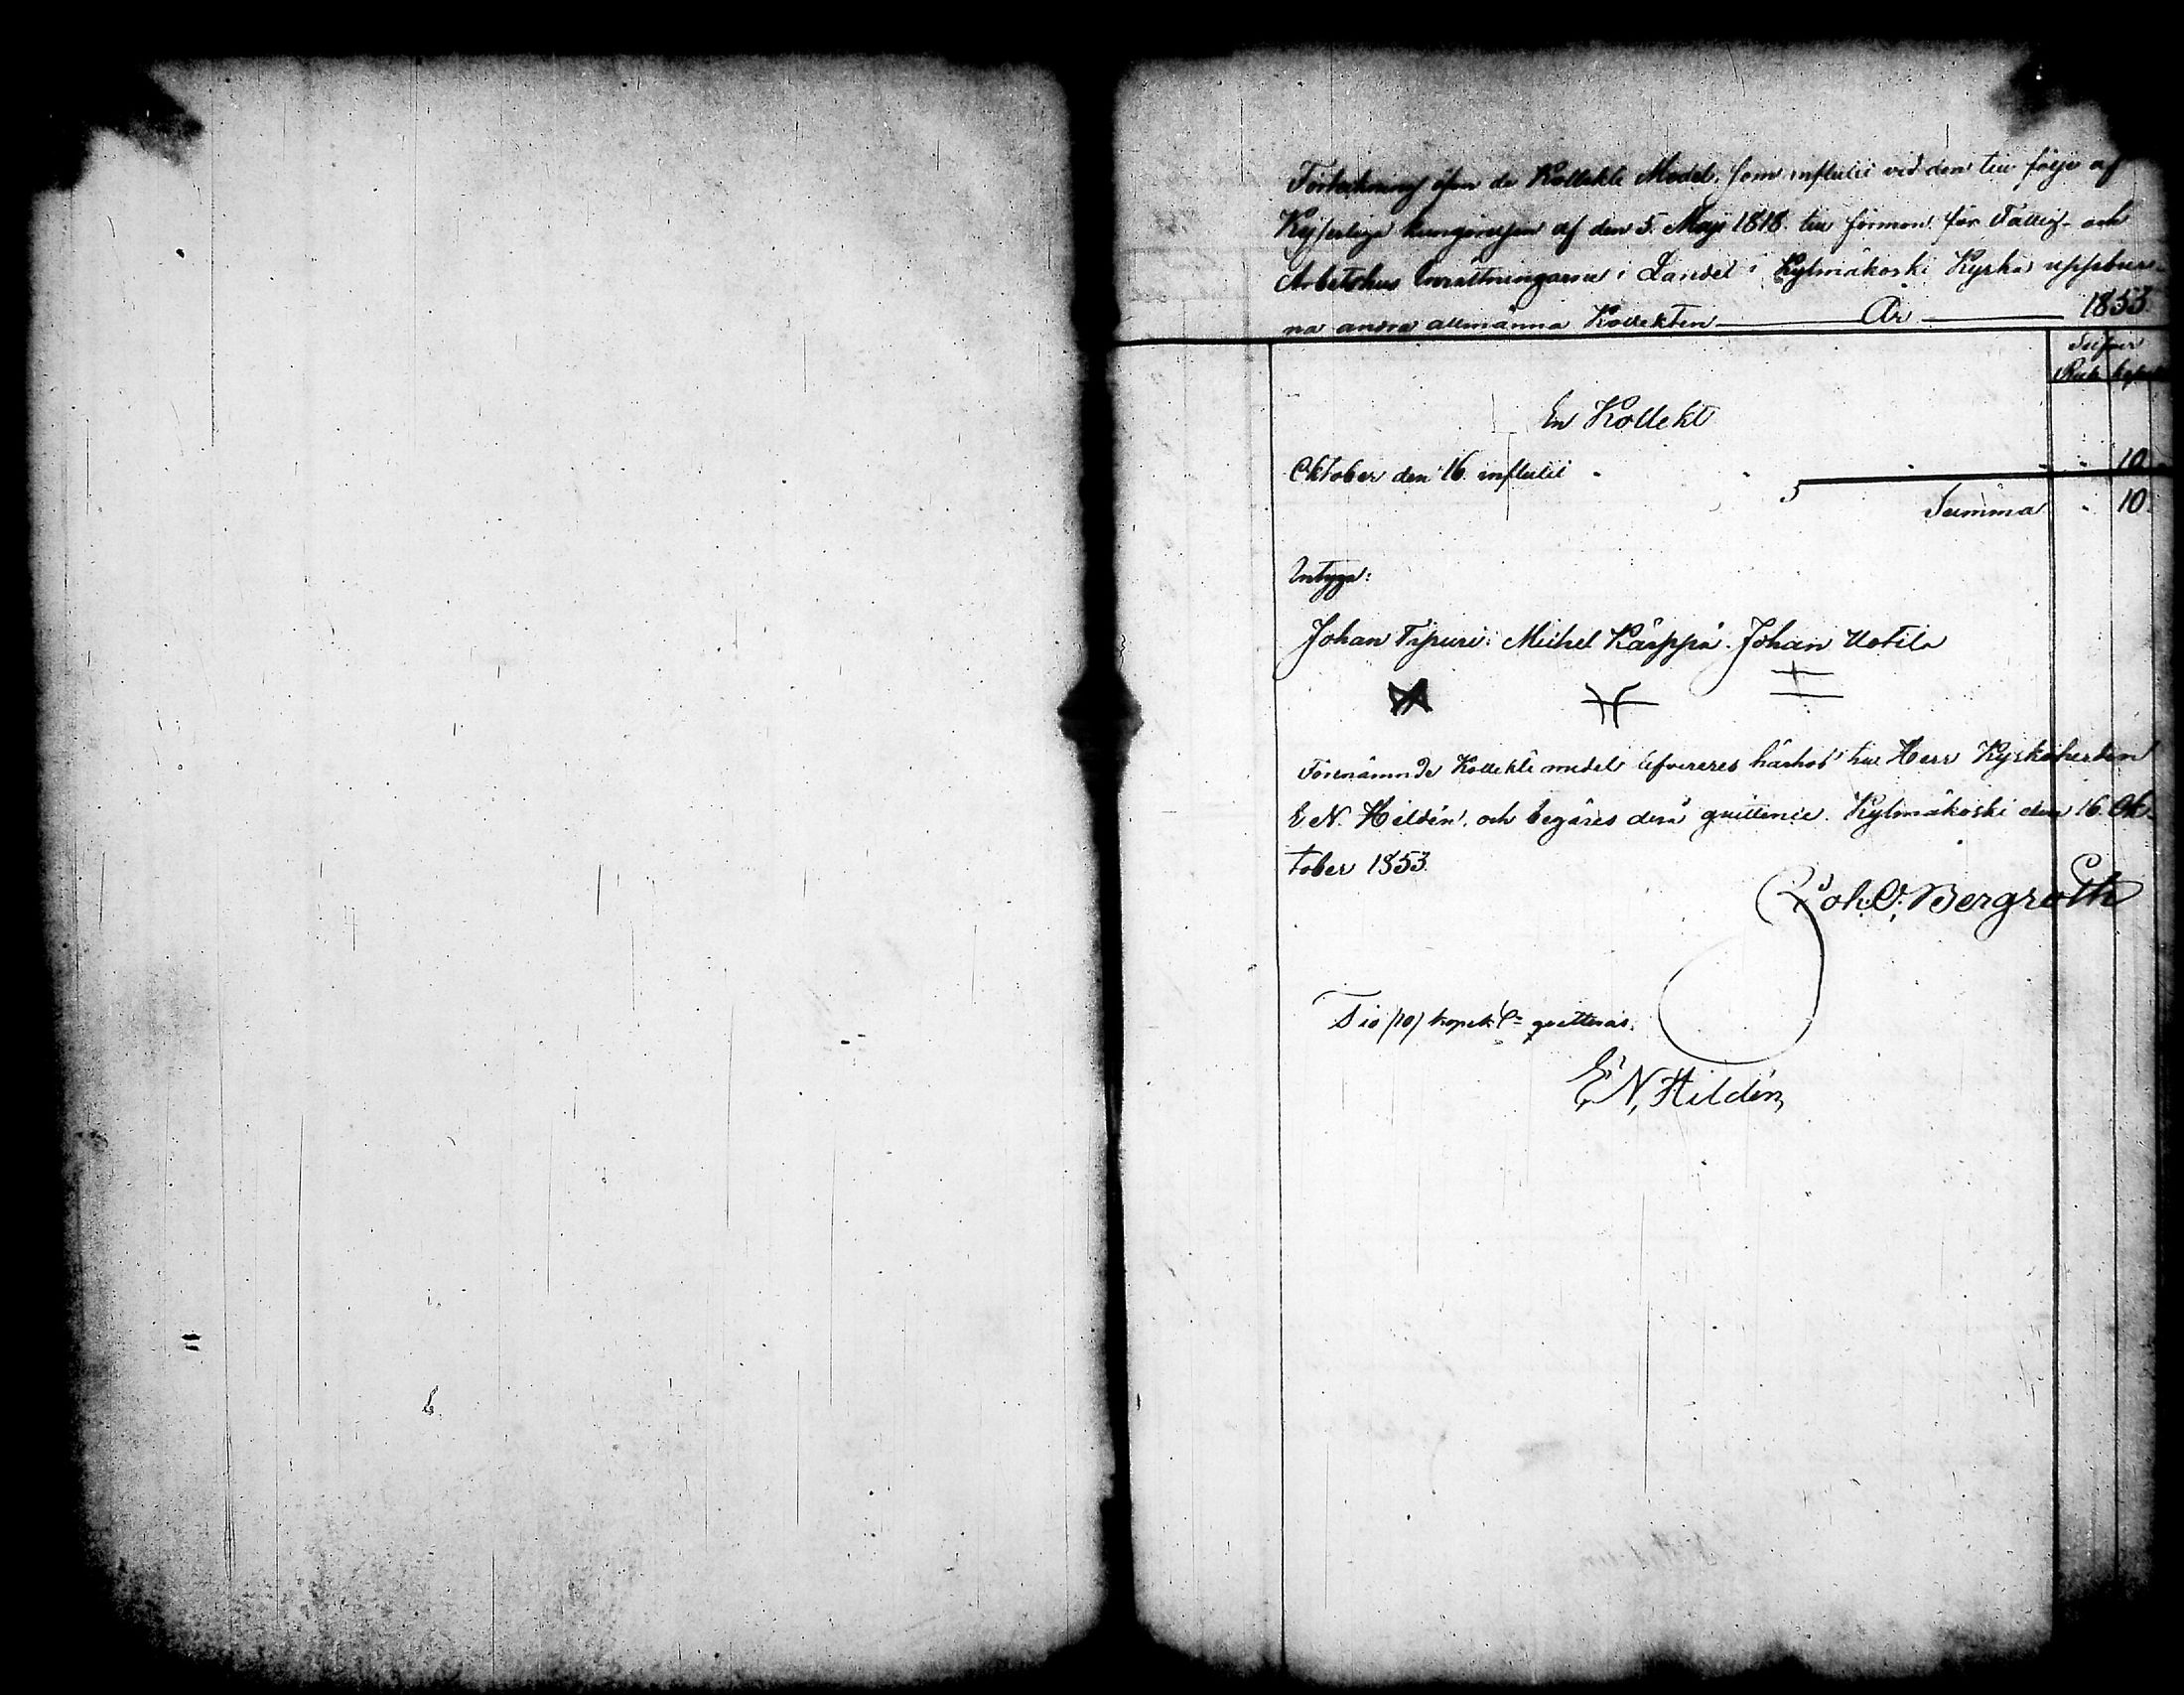 Förteckning öfver de Kollekt Medel, som influtit vid den till följe af
Kejserliga kungörelsen af den 5. Maji 1818 till förmon för Fattig- och
Arbetshus Inrättningarna i Landet i Kylmäkoski Kyrka uppebur-
na andra allmänna Kollekten År 1853.
Silfver
Rub. kopek
En Kollekt
Oktober den 16. influtit " 10
Summa " 10.
Intyga:
Johan Tipuri. Michel Kärppä. Johan Uotila
Förenämnde Kollekt medel lefvereres härhos till Herr Kyrkoherden
E N. Hildén, och begäres derå quittence. Kylmäkoski den 16. Ok-
tober 1853.
Joh. C. Bergroth
Tio (10) kopek Sr quitteras.
E. N. Hildén